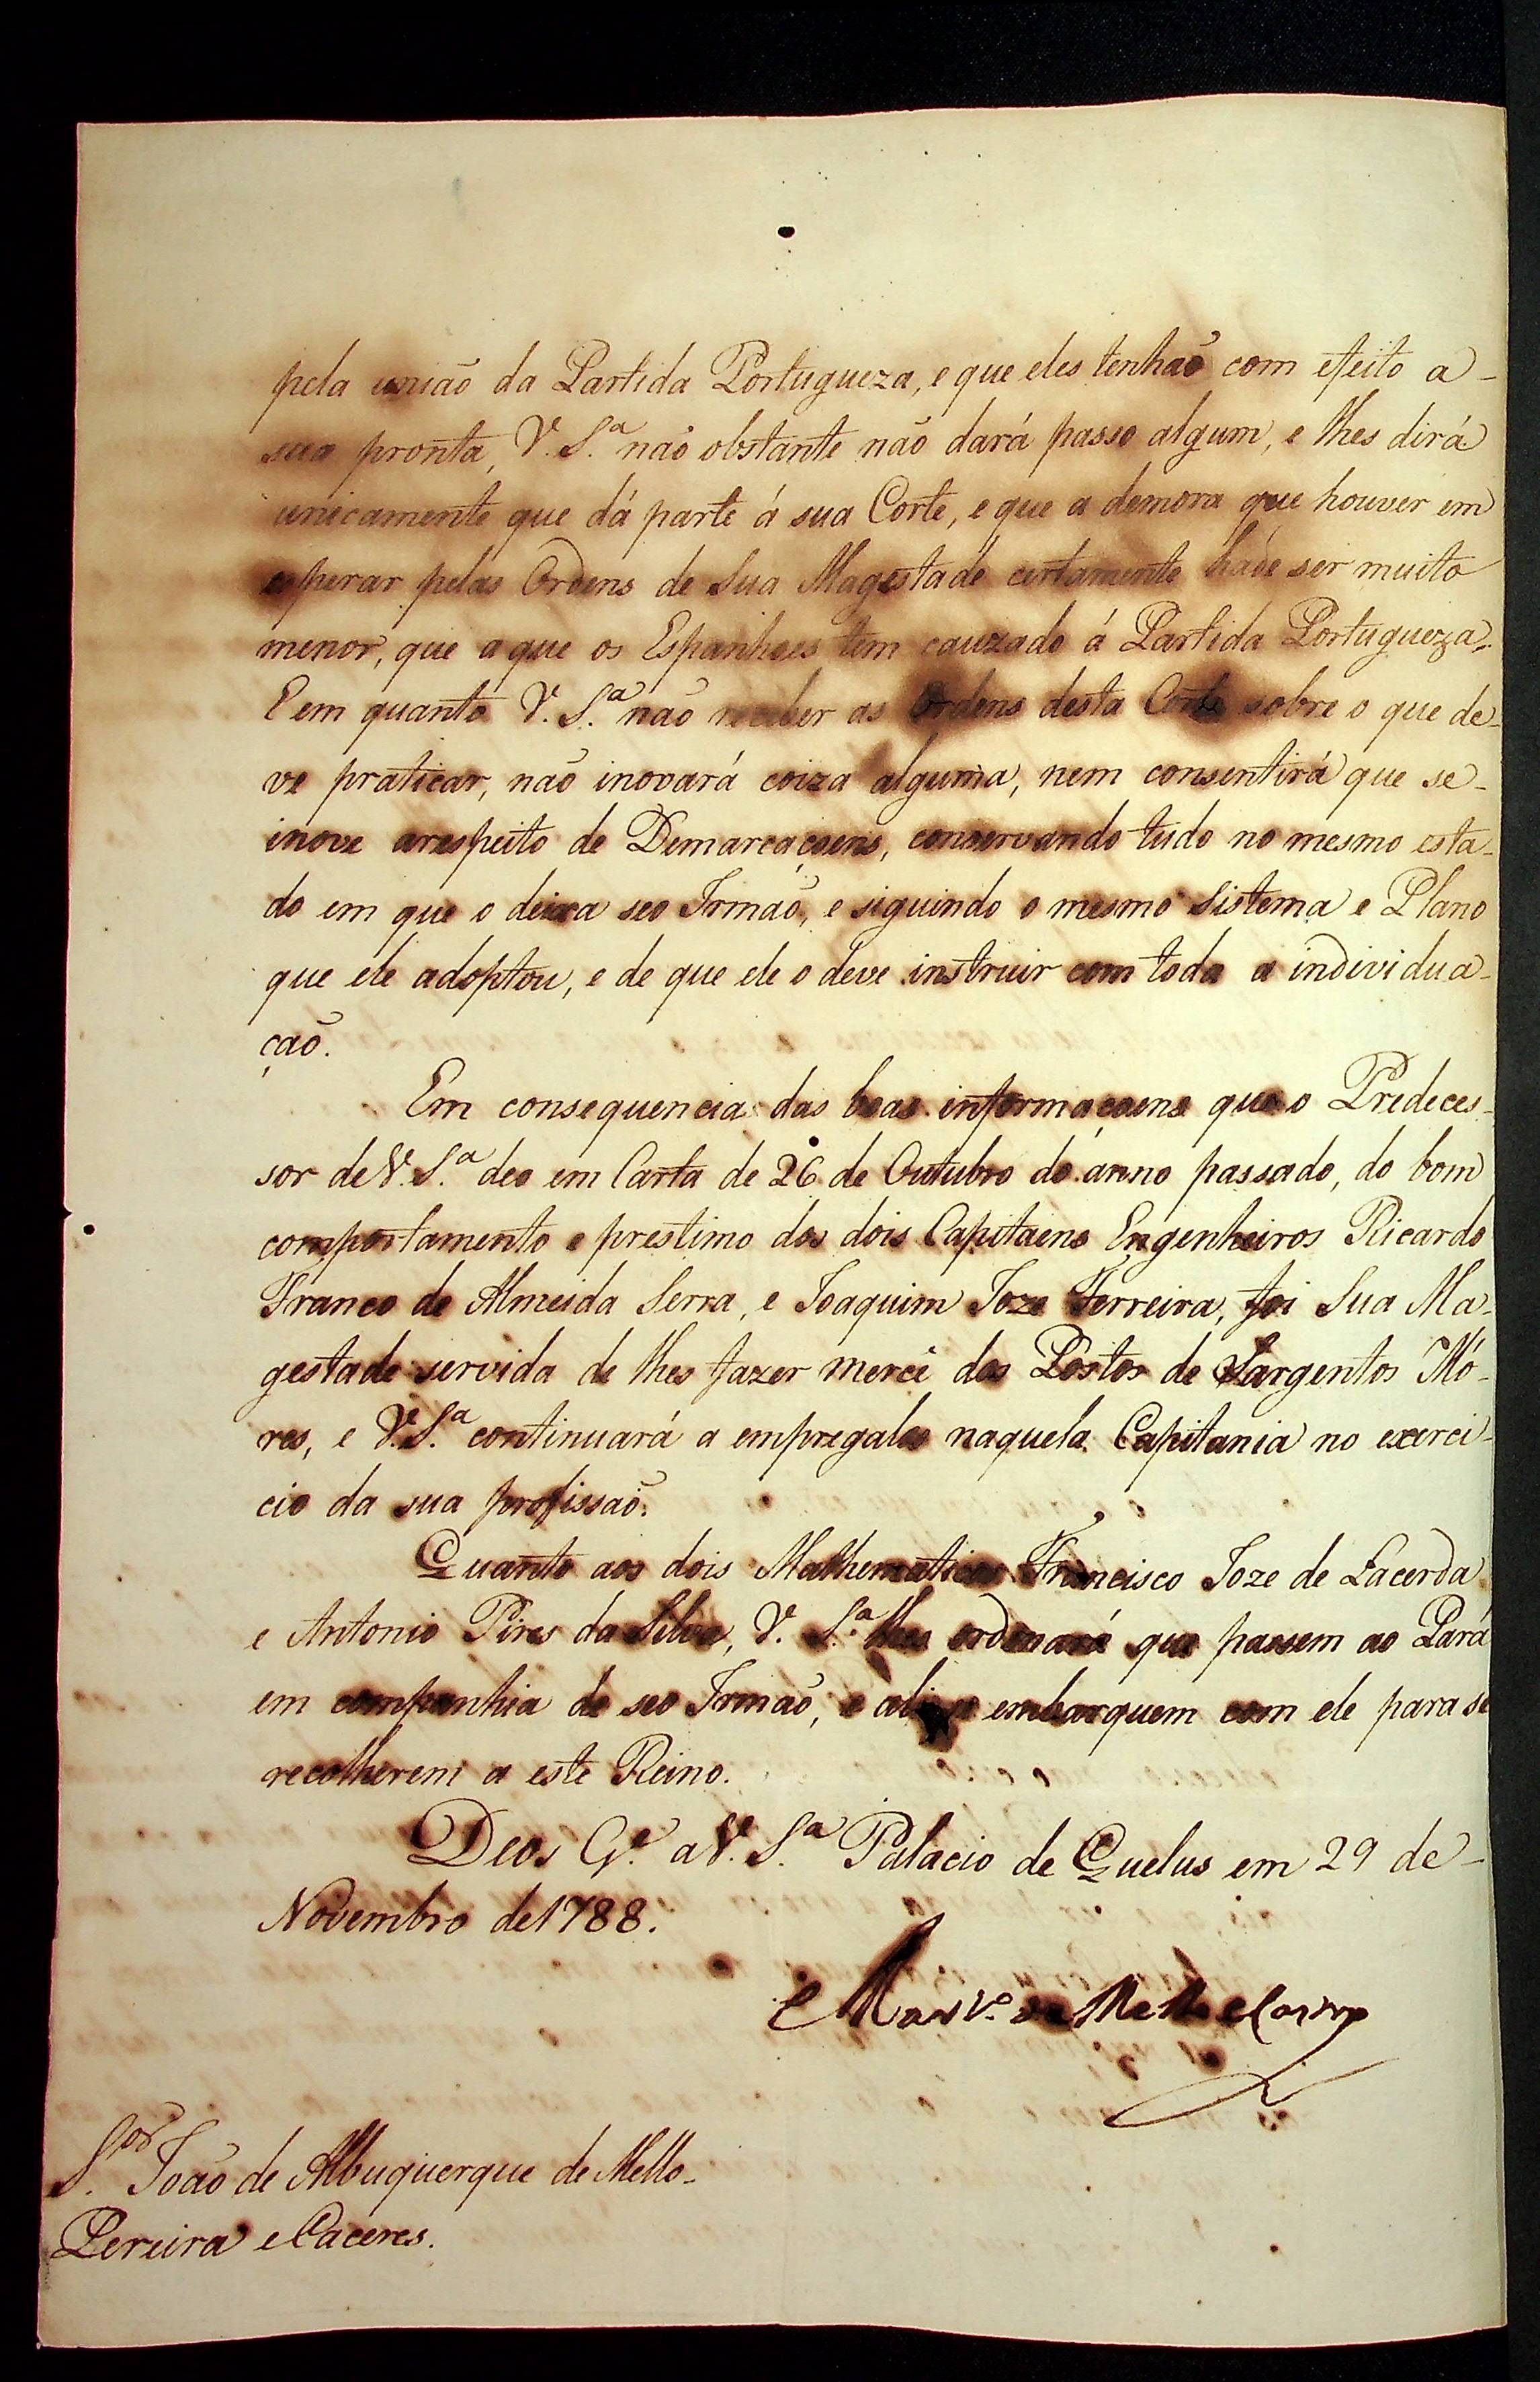 pela união da Partida Portugueza, e que eles tenhaõ com efeito a
sua pronta, V. S.ª naõ obstante não dará passo algum, e lhes dirá
unicamente que dá parte á sua Corte, e que a demora que houver em
esperar pelas Ordens de Sua Magestade certamente hade ser muito
menor, que a que os Espanhoes tem cauzado á Partida Portugueza.
E em quanto V. S.ª naõ receber as Ordens desta Corte sobre o que de-
ve praticar, naõ inovará coiza alguma, nem consentirá que se
inove arespeito de Demarcaçoens, conservando tudo no mesmo esta-
do em que o deixa seo Irmaõ, e siguindo o mesmo Sistema e Plano
que ele adoptou, e de que ele o deve instruir com toda a individua-
çaõ.
Em consequencia das boas informaçoens que o Predeces-
sor de V. S.ª deo em Carta de 26 de Outubro do anno passado, do bom
comportamento e prestimo dos dois Capitaens Engenheiros Ricardo
Franco de Almeida Serra, e Joaquim Joze Ferreira, foi Sua Ma-
gestade servida de lhes fazer mercê dos Postos de Sargentos Mó-
res, e V. S.ª continuará a empregalos naquela Capitania no exerci-
cio da sua profissaõ.
Quanto aos dois Mathematicos Francisco Joze de Lacerda
e Antonio Pires da Silva, V. S.ª lhes ordenará que passem ao Pará
em companhia de seo Irmaõ, e ali se embarquem com ele para se
recolherem a este Reino.
Deos G.e a V. S.ª Palacio de Quelus em 29 de
Novembro de 1788.
Mart.º de Mello e Castro
S.or Joaõ de Albuquerque de Mello
Pereira e Caceres.